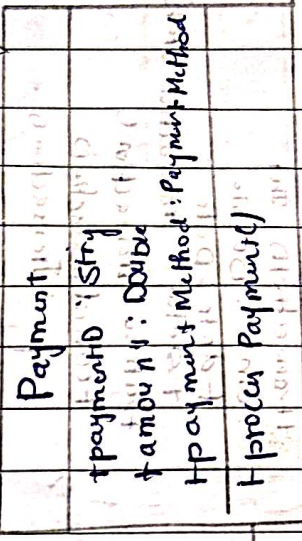 Payment
+paymentID : Stry
+amount : Double
+payment Method : Payment Method
+process Payment()